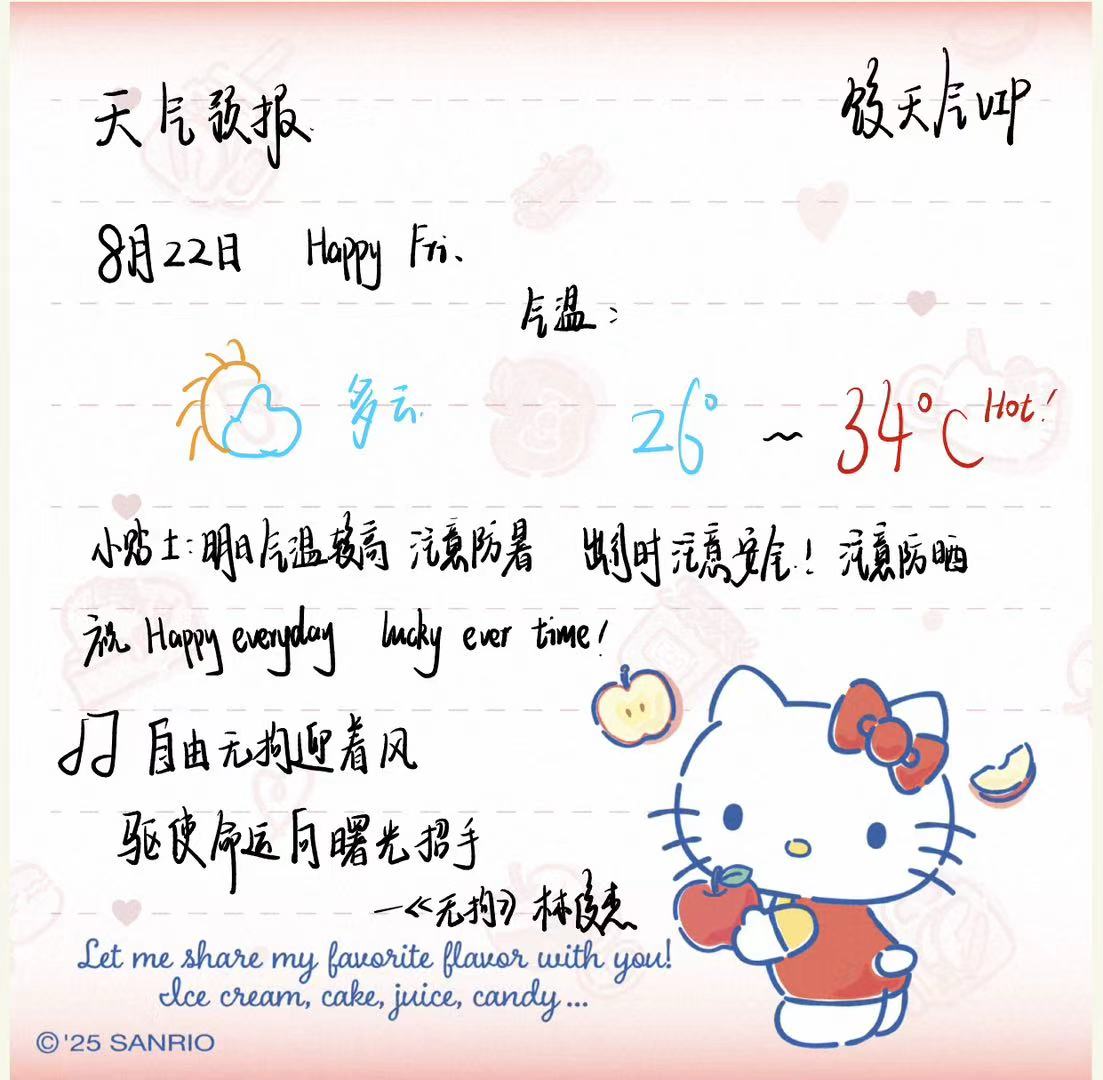 天气预报
天气VIP
8月22日 Happy Fri.
气温:
多云 26° ~ 34°C Hot!
小贴士:明日气温较高 注意防暑 出行时注意安全!注意防晒
祝 Happy everyday lucky ever time!
自由无拘迎着风
驱使命运向曙光招手
—《无拘》林俊杰
Let me share my favorite flavor with you!
Ice cream, cake, juice, candy...
©'25 SANRIO